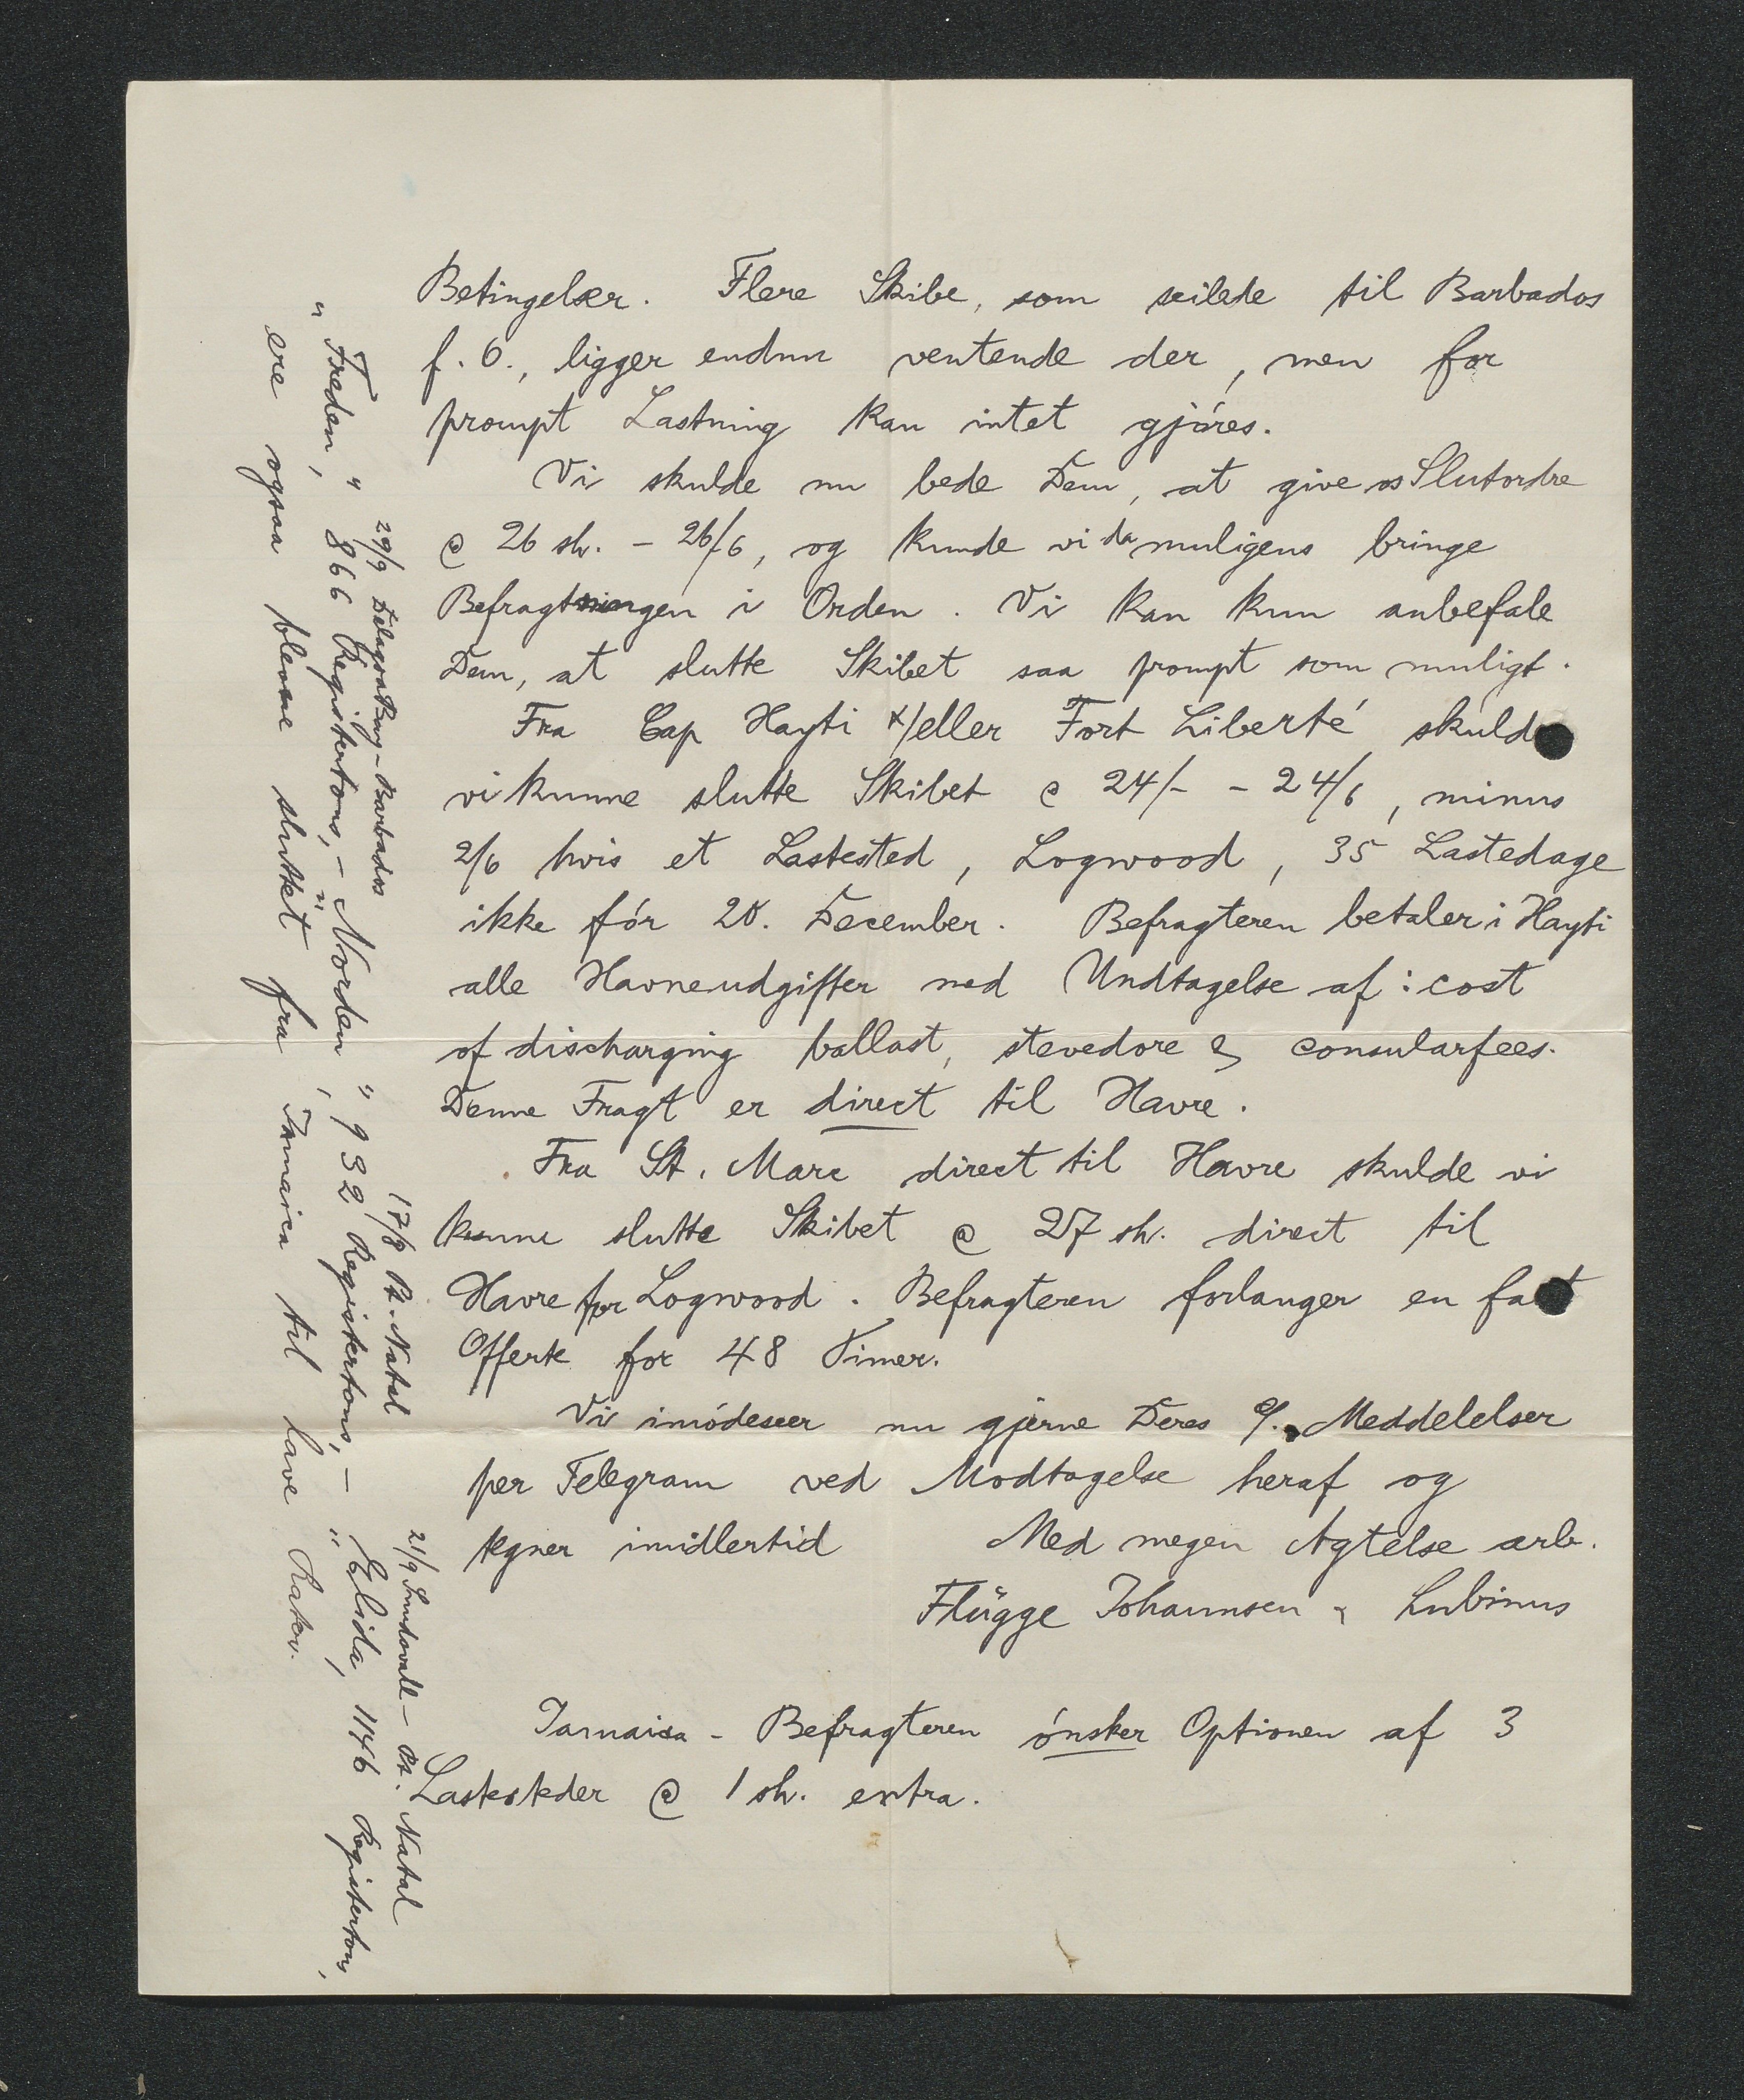 Betingelser. Flere Skibe, som seilede til Barbados
f. O., ligger endnu ventende der, men for
prompt Lastning kan intet gjóres.
Vi skulde nu bede Dem, at give os Slutordre
@ 26 sh. - 26/6, og kunde vi da muligens bringe
Befragtningen i Orden. Vi kan kun anbefale
Dem, at slutte Skibet saa prompt som muligt.
Fra Cap Hayti &/eller Fort Liberté skulde
vi kunne slutte Skibet @ 24/- - 24/6, minus
2/6 hvis et Lastested, Logwood, 35 Lastedage
ikke fór 20. December. Befragteren betaler i Hayti
alle Havneudgifter med Undtagelse af: cost
of discharging ballast, stevedore & consularfees.
Denne Fragt er direct til Havre.
Fra St. Marc direct til Havre skulde vi
kunne slutte Skibet @ 27 sh. direct til
Havre for Logwood. Befragteren forlanger en fast
Offerte for 48 Timer.
Vi imódeseer nu gjerne Deres g. Meddelelser
per Telegram ved Modtagelse heraf og
tegner imidlertid Med megen Agtelse arb.
Flügge Johannsen & Lubinus
Jamaica - Befragteren ónsker Optionen af 3
Lastesteder @ 1 sh. extra.
29/9 DelagoaBay - Barbados 17/9 Pt. Natal 21/9 Sundsvall - Pt. Natal
"Freden," 866 Registertons, - "Norden," 932 Registertons, - "Elida, 1146 Registertons,
ere ogsaa blevne sluttet fra Jamaica til lave Rater.